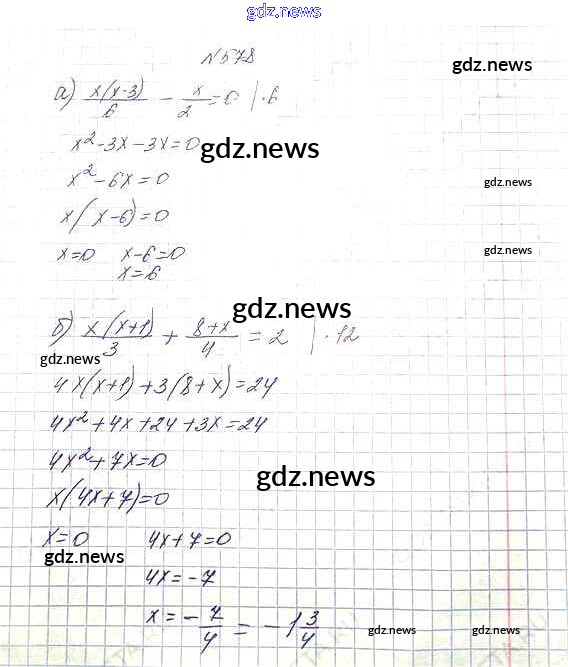 gdz.news
№578
gdz.news
а) x(x-3)/6 - x/2 = 0 | ·6
x² - 3x - 3x = 0
gdz.news
x² - 6x = 0
gdz.news
x(x-6) = 0
x = 0 x - 6 = 0
gdz.news
x = 6
gdz.news
б) x(x+1)/3 + 8+x/4 = 2 | ·12
gdz.news
4x(x+1) + 3(8+x) = 24
4x² + 4x + 24 + 3x = 24
4x² + 7x = 0
gdz.news
x(4x+7) = 0
x = 0 4x + 7 = 0
gdz.news
4x = -7
x = - 7/4 = -1 3/4
gdz.news
gdz.news